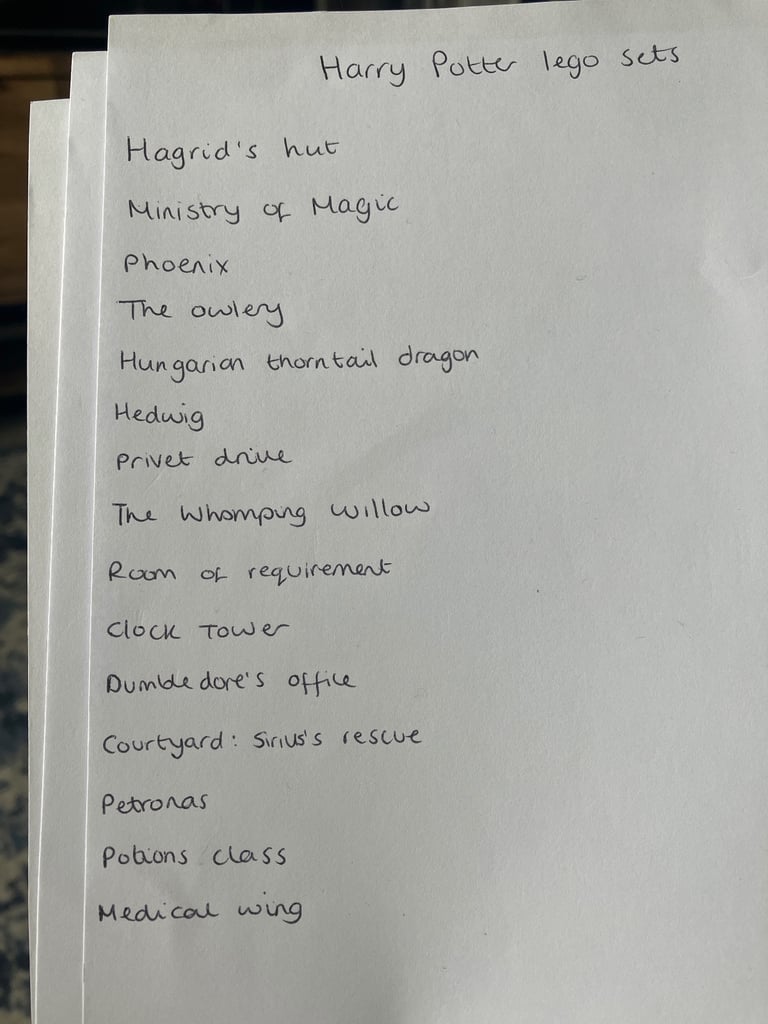 Harry Potter lego sets
Hagrid's hut
Ministry of Magic
Phoenix
The owlery
Hungarian thorntail dragon
Hedwig
Privet drive
The Whomping Willow
Room of requirement
Clock Tower
Dumbledore's office
Courtyard: Sirius's rescue
Petronas
Potions class
Medical wing